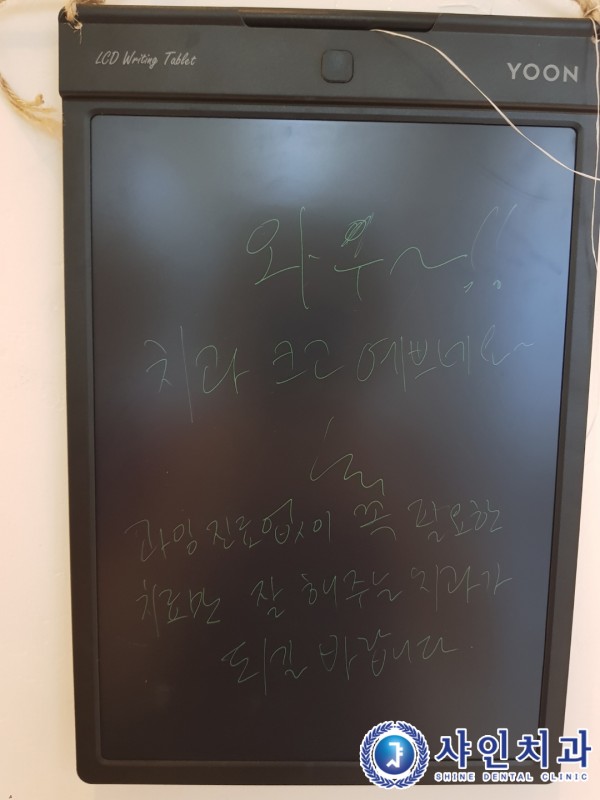 LCD Writing Tablet
YOON
와우~!!
치과 크고 예쁘네요
과잉진료없이 꼭 필요한
치료만 잘 해주는 치과가
되길 바랍니다.
샤인치과
SHINE DENTAL CLINIC